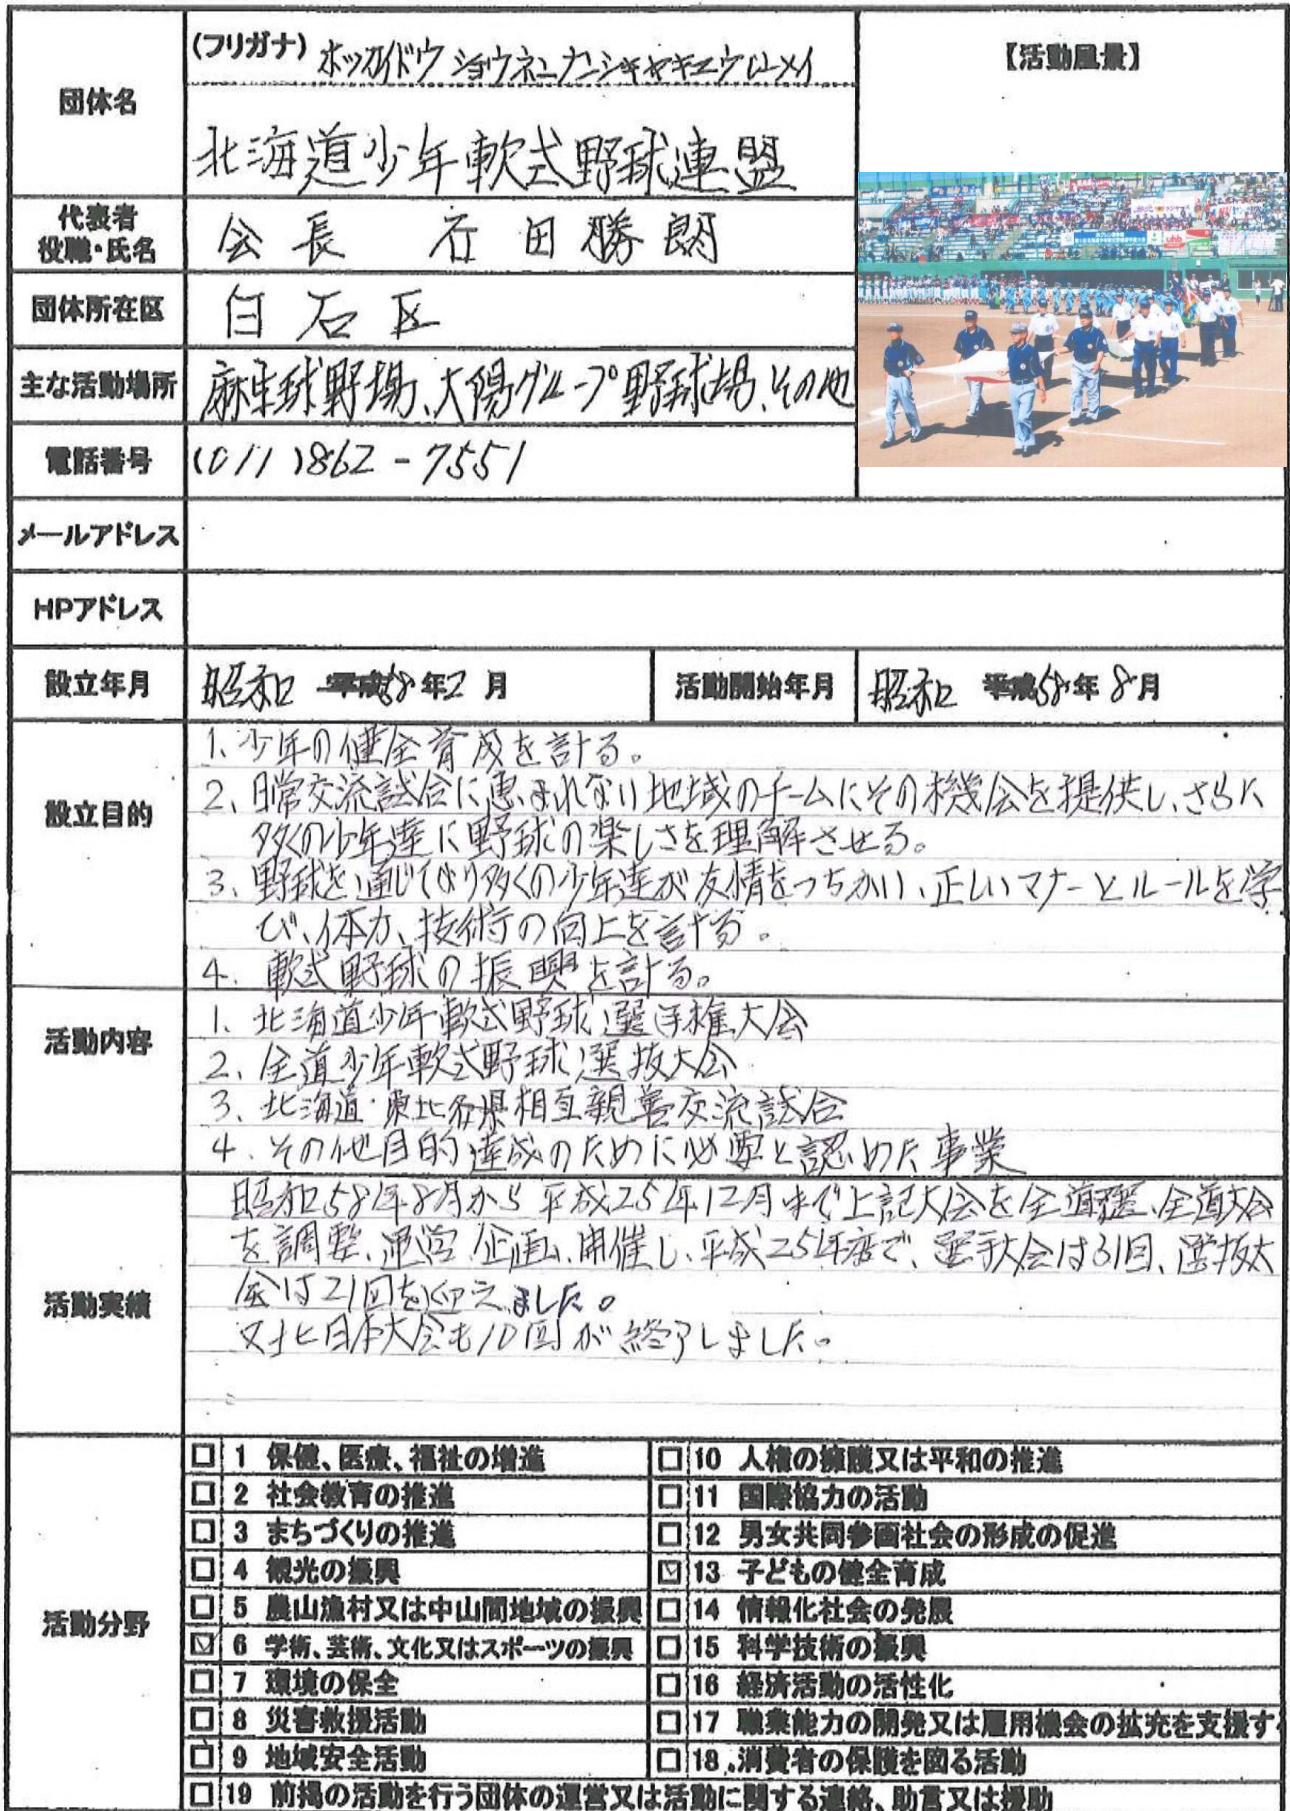 団体名
(フリガナ) ホッカイドウ ショウネンナンシキヤキュウレンメイ
北海道少年軟式野球連盟
【活動風景】
代表者
役職・氏名
会長 石田勝朗
団体所在区
白石区
主な活動場所
麻生球野場、太陽グループ野球場、その他
電話番号
(011)862-7551
メールアドレス
HPアドレス
設立年月
昭和 平成58年2月
活動開始年月
昭和 平成58年8月
設立目的
1、少年の健全育成を計る。
2、日常交流試合に恵まれない地域のチームにその機会を提供し、さらに
多くの少年達に野球の楽しさを理解させる。
3、野球を通じてより多くの少年達が友情をつちかい、正しいマナーとルールを学
び、体力、技術の向上を計る。
4、軟式野球の振興を計る。
活動内容
1、北海道少年軟式野球選手権大会
2、全道少年軟式野球選抜大会
3、北海道・東北各県相互親善交流試合
4、その他目的達成のために必要と認めた事業
活動実績
昭和58年8月から平成25年12月まで上記大会を全道、全道大会
を調整、運営、企画、開催し、平成25年度で、選手大会は31回、選抜大
会は21回を迎えました。
又北日本大会も10回が終了しました。
活動分野
□ 1 保健、医療、福祉の増進
□ 10 人権の擁護又は平和の推進
□ 2 社会教育の推進
□ 11 国際協力の活動
□ 3 まちづくりの推進
□ 12 男女共同参画社会の形成の促進
□ 4 観光の振興
☑ 13 子どもの健全育成
□ 5 農山漁村又は中山間地域の振興
□ 14 情報化社会の発展
☑ 6 学術、芸術、文化又はスポーツの振興
□ 15 科学技術の振興
□ 7 環境の保全
□ 16 経済活動の活性化
□ 8 災害救援活動
□ 17 職業能力の開発又は雇用機会の拡充を支援す
□ 9 地域安全活動
□ 18 消費者の保護を図る活動
□ 19 前掲の活動を行う団体の運営又は活動に関する連絡、助言又は援助
uhb